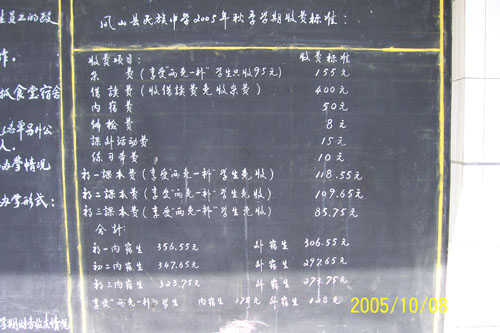 凤山县民族中学2005年秋季学期收费标准:
收费项目: 收费标准
杂 费(享受"两免一补"学生只收95元) 155元
借读费(收借读费免收杂费) 400元
内宿费 50元
体检费 8元
课外活动费 15元
练习本费 10元
初一课本费(享受"两免一补"学生免收) 118.55元
初二课本费(享受"两免一补"学生免收) 109.65元
初三课本费(享受"两免一补"学生免收) 85.75元
合计:
初一内宿生 356.55元 外宿生 306.55元
初二内宿生 347.65元 外宿生 297.65元
初三内宿生 323.75元 外宿生 273.75元
享受"两免一补"学生 内宿生 178元 外宿生 128元
作。
食堂宿舍
人。
办学情况
办学形式:
2005/10/08